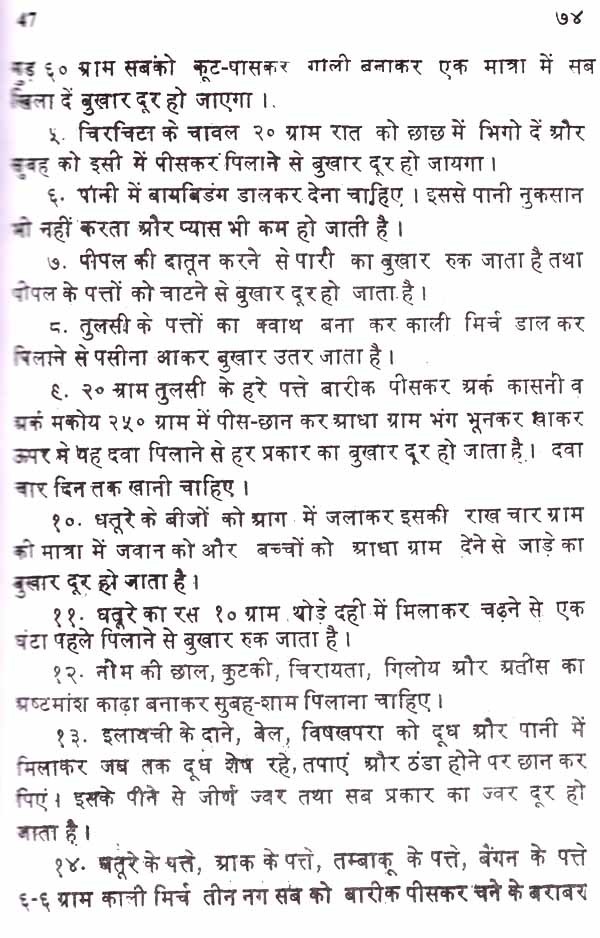 47 ७४
गुड़ ६० ग्राम सबको कूट-पासकर गाली बनाकर एक मात्रा में सब
खिला दें बुखार दूर हो जाएगा ।
५. चिरचिटा के चावल २० ग्राम रात को छाछ में भिगो दें और
सुबह को इसी में पीसकर पिलाने से बुखार दूर हो जायगा ।
६. पानी में बायबिडंग डालकर देना चाहिए । इससे पानी नुकसान
भी नहीं करता और प्यास भी कम हो जाती है ।
७. पीपल की दातून करने से पारी का बुखार रुक जाता है तथा
पीपल के पत्तों को चाटने से बुखार दूर हो जाता है ।
८. तुलसी के पत्तों का क्वाथ बना कर काली मिर्च डाल कर
पिलाने से पसीना आकर बुखार उतर जाता है ।
९. २० ग्राम तुलसी के हरे पत्ते बारीक पीसकर अर्क कासनी व
अर्क मकोय २५० ग्राम में पीस-छान कर आधा ग्राम भंग भूनकर खाकर
ऊपर से यह दवा पिलाने से हर प्रकार का बुखार दूर हो जाता है । दवा
चार दिन तक खानी चाहिए ।
१०. धतूरे के बीजों को आग में जलाकर इसकी राख चार ग्राम
की मात्रा में जवान को और बच्चों को आधा ग्राम देने से जाड़े का
बुखार दूर हो जाता है ।
११. धतूरे का रस १० ग्राम थोड़े दही में मिलाकर चढ़ने से एक
घंटा पहले पिलाने से बुखार रुक जाता है ।
१२. नीम की छाल, कुटकी, चिरायता, गिलोय और अतीस का
अष्टमांश काढ़ा बनाकर सुबह-शाम पिलाना चाहिए ।
१३. इलायची के दाने, बेल, विषखपरा को दूध और पानी में
मिलाकर जब तक दूध शेष रहे, तपाएं और ठंडा होने पर छान कर
पिएं । इसके पीने से जीर्ण ज्वर तथा सब प्रकार का ज्वर दूर हो
जाता है ।
१४. धतूरे के पत्ते, आक के पत्ते, तम्बाकू के पत्ते, बैंगन के पत्ते
६-६ ग्राम काली मिर्च तीन नग सब को बारीक पीसकर चने के बराबर